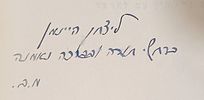 ליצחק היינמן
ברחשי תודה ובברכה נאמנה
מ.ב.